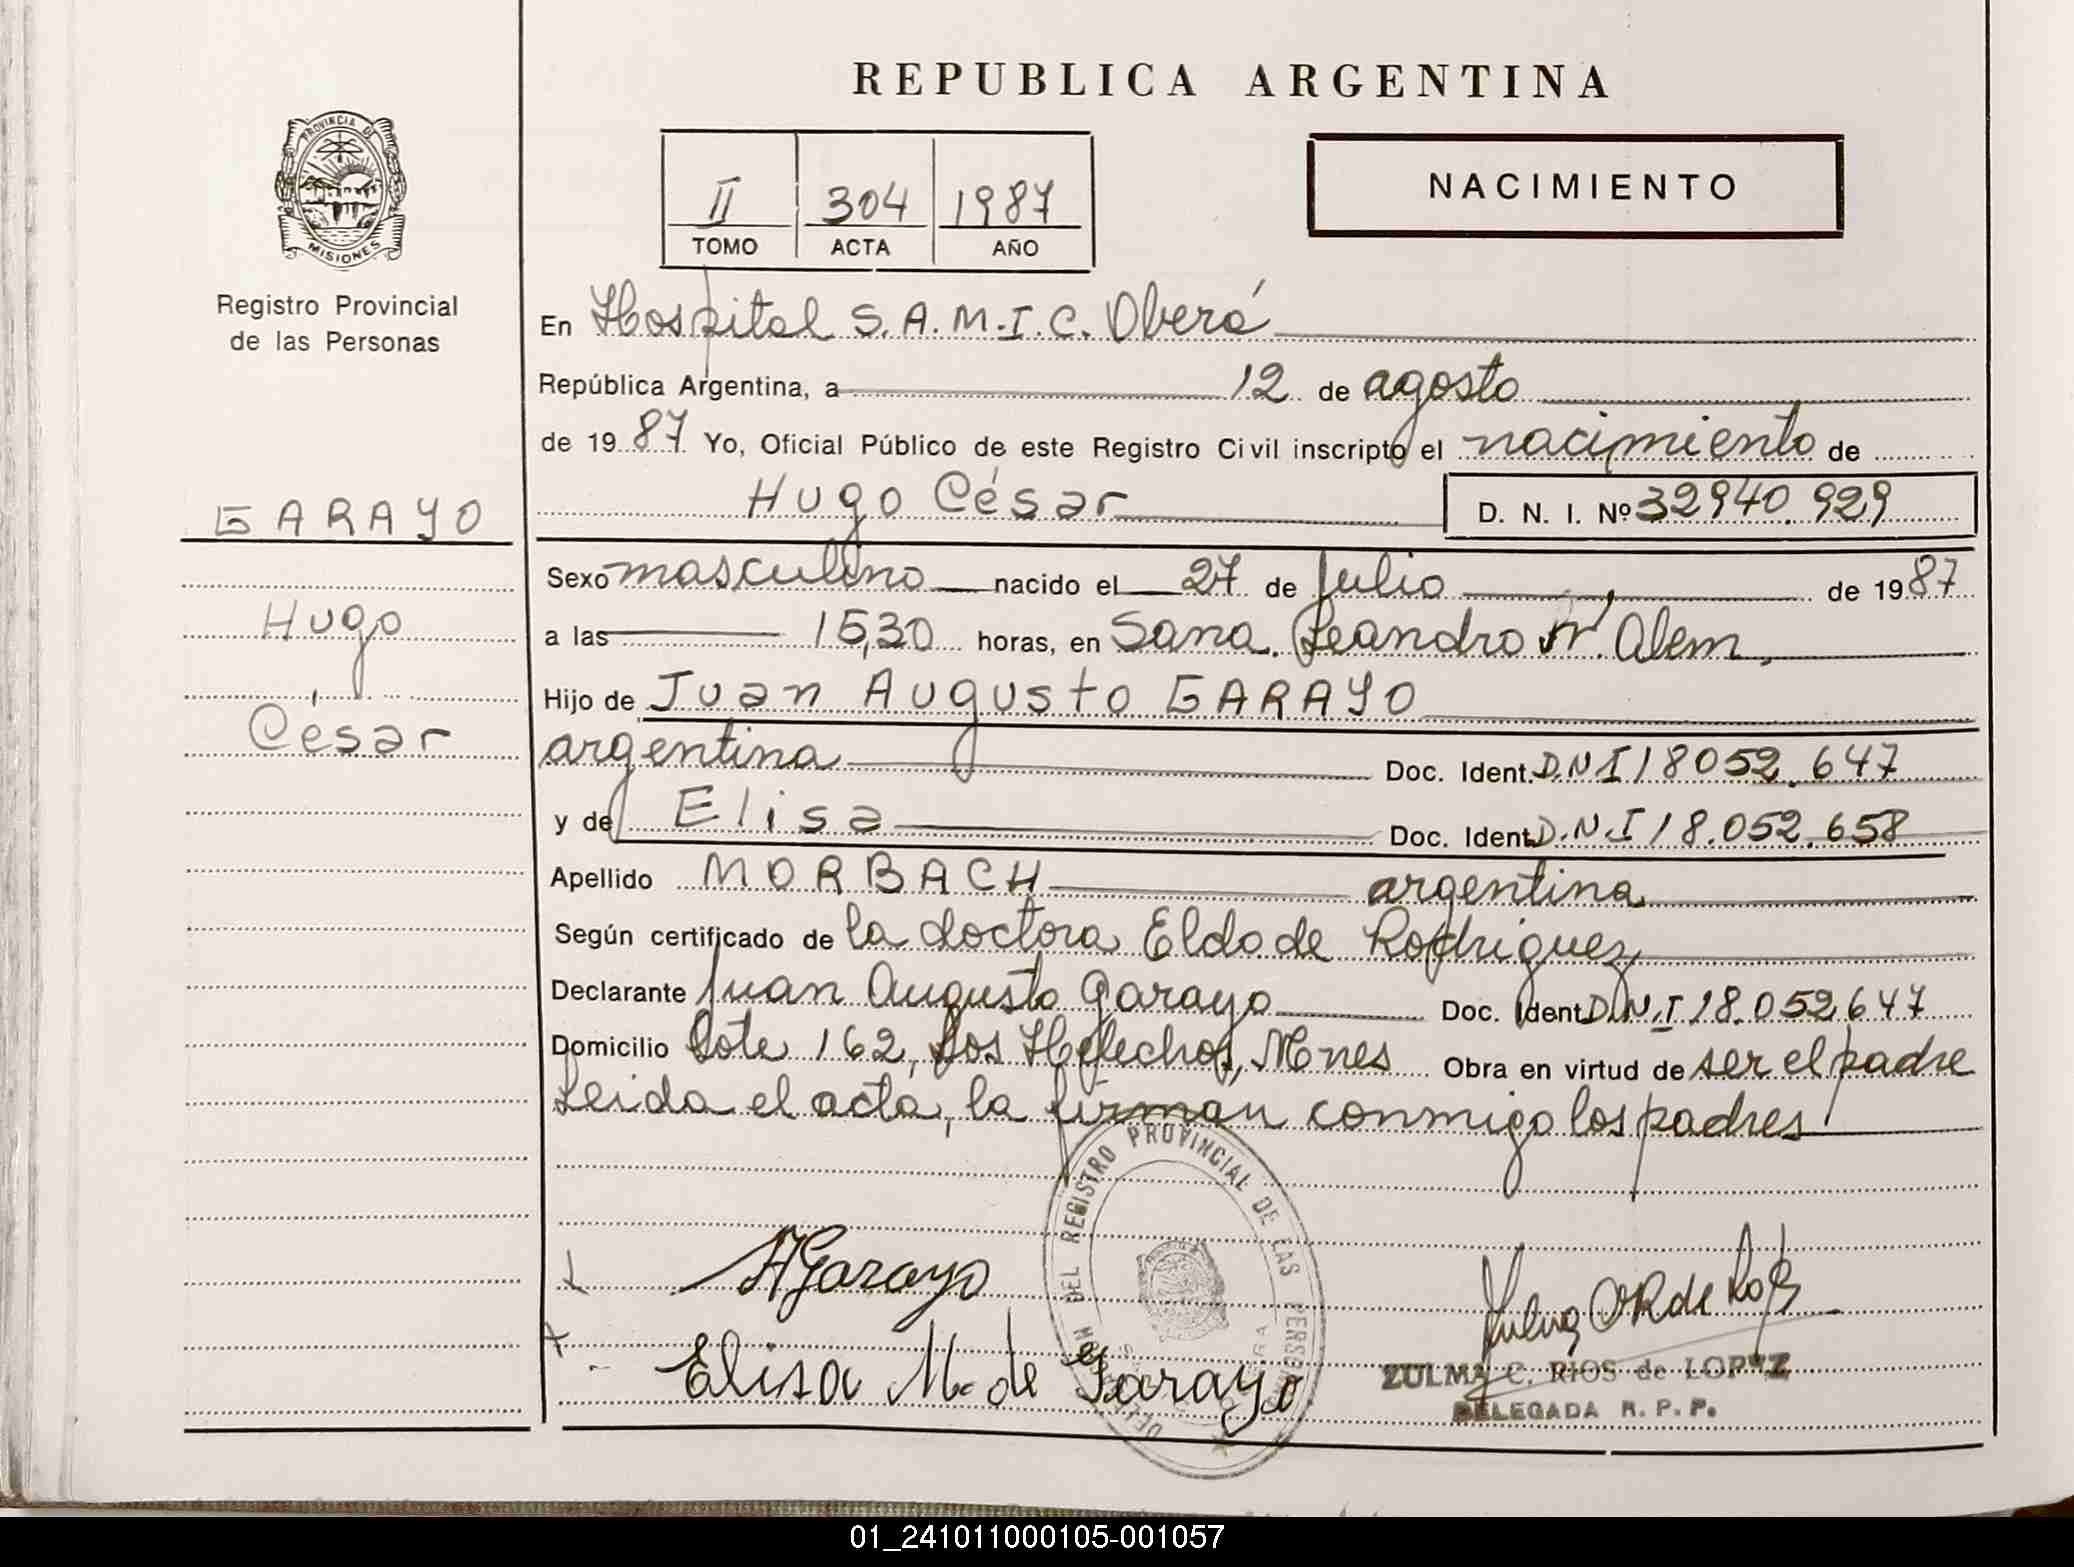 REPUBLICA ARGENTINA
PROVINCIA DE
MISIONES
Registro Provincial
de las Personas
II 304 1987
TOMO ACTA AÑO
NACIMIENTO
En Hospital S.A.M.I.C. Oberá
República Argentina, a 12 de agosto
de 1987 Yo, Oficial Público de este Registro Civil inscripto el nacimiento de
Hugo César D. N. I. Nº 32940.929
GARAYO
Hugo
César
Sexo masculino nacido el 27 de julio de 1987
a las 15,30 horas, en Sana. Leandro N. Alem,
Hijo de Juan Augusto GARAYO
argentina Doc. Ident. D.N I 18052.647
y de Elisa Doc. Ident. D.N.I 18.052.658
Apellido MORBACH argentina
Según certificado de la doctora Elda de Rodriguez
Declarante Juan Augusto Garayo Doc. Ident. D.N.I 18.052.647
Domicilio Lote 162, Los Helechos, Mnes Obra en virtud de ser el padre
Leida el acta, la firman conmigo los padres
DEL REGISTRO PROVINCIAL DE LAS PERSONAS
AGarayo
Elisa M. de Garayo
ZULMA C. RIOS de LOPEZ
DELEGADA R. P. P.
01_241011000105-001057